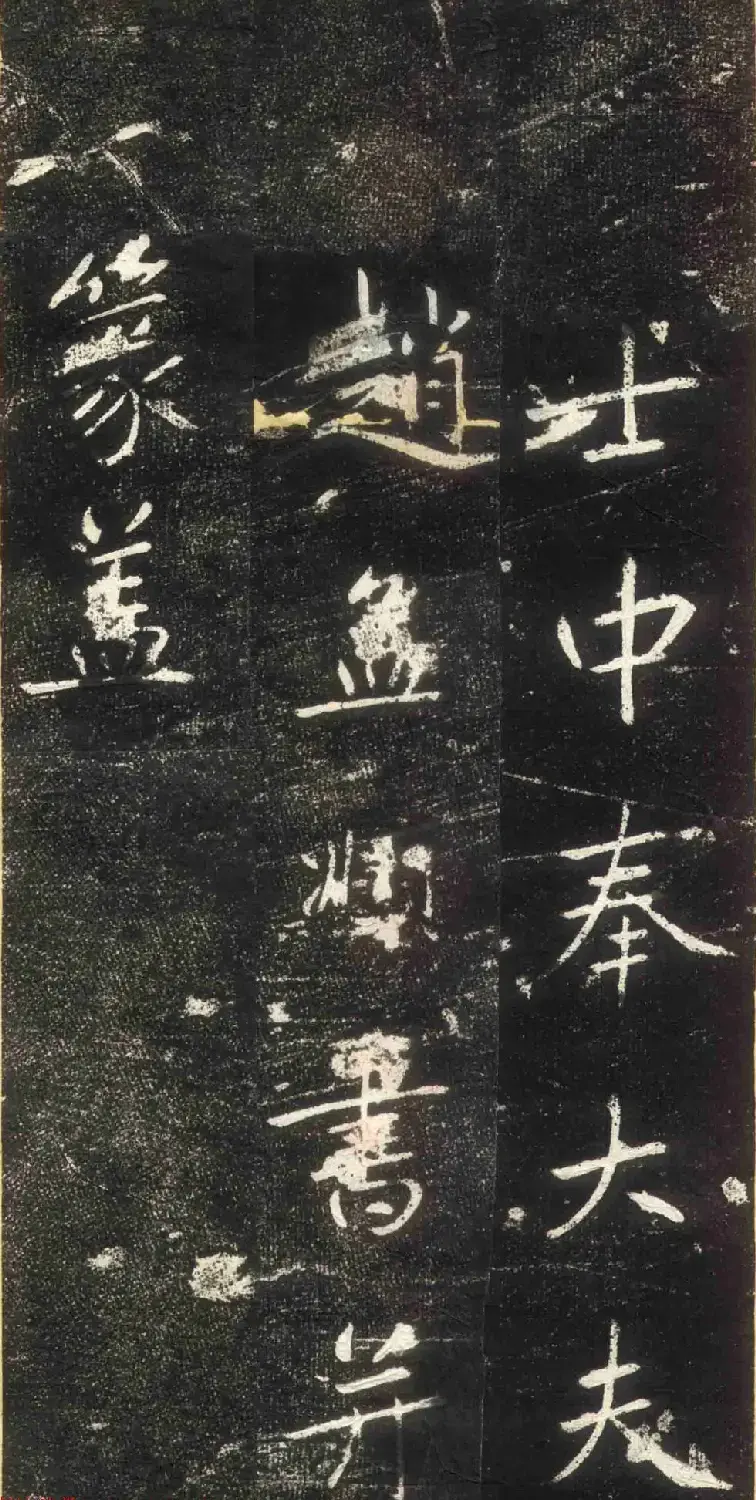 士中奉大夫
趙孟頫書并
篆盖